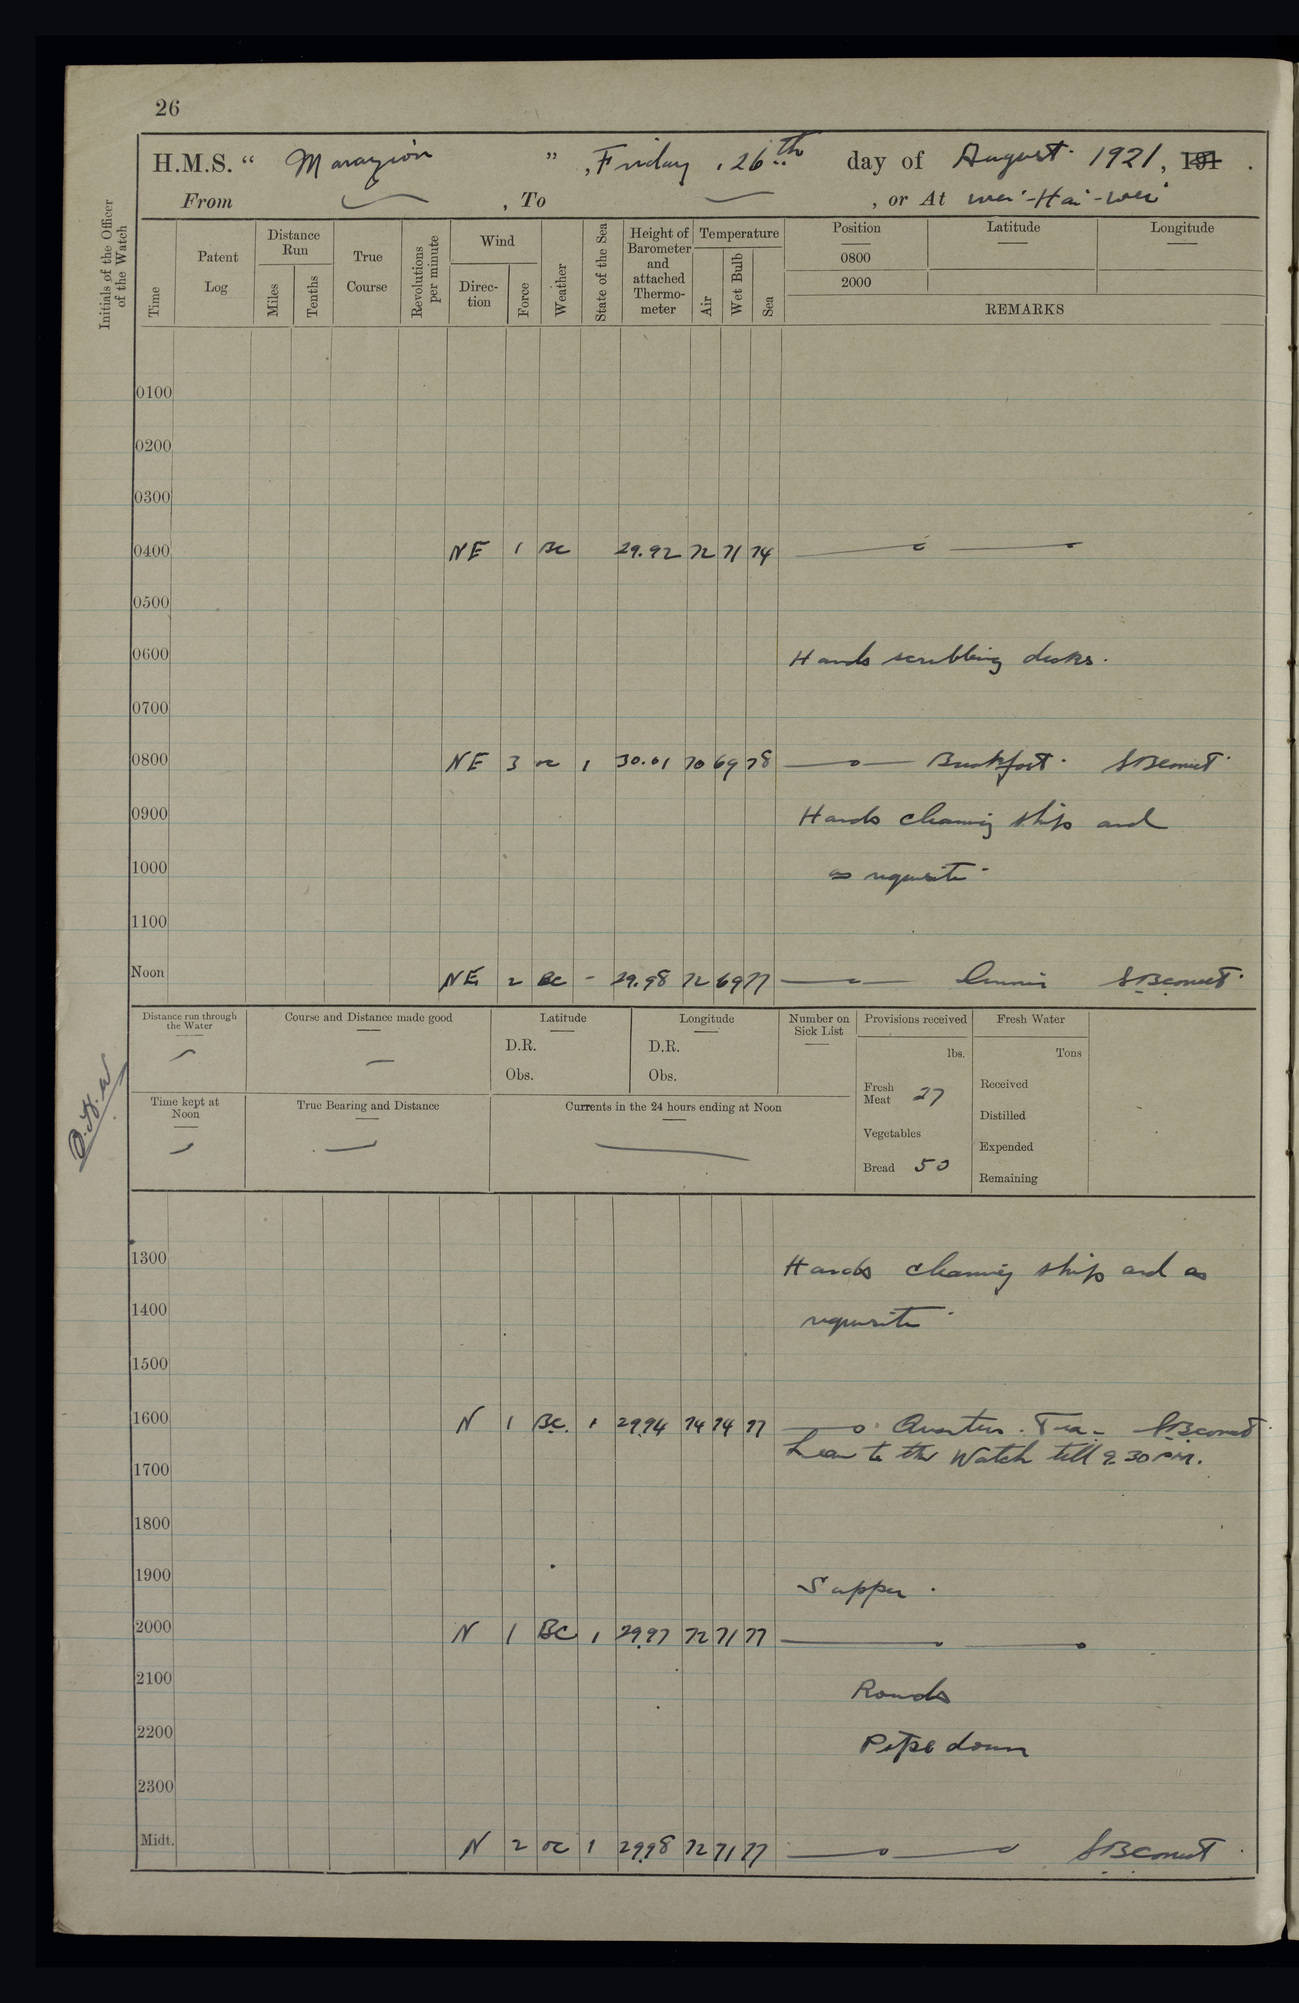 26
H.M.S. “ Marazion ” , Friday , 26th day of August 1921 , 191 .
From , To , or At Wei-Hai-Wei
Initials of the Officer of the Watch
Time
Patent Log
Distance Run
Miles
Tenths
True Course
Revolutions per minute
Wind
Direc-tion
Force
Weather
State of the Sea
Height of Barometer and attached Thermo-meter
Temperature
Air
Wet Bulb
Sea
Position Latitude Longitude
0800
2000
REMARKS
0100
0200
0300
0400 NE 1 BC 29.92 72 71 74
0500
0600 Hands scrubbing decks.
0700
0800 NE 3 OC 1 30.01 70 69 78 Breakfast.
0900 Hands cleaning ship and
1000 as requisite
1100
Noon NE 2 BC - 29.98 72 69 77 Dinner
Distance run through the Water
Course and Distance made good
Latitude
D.R.
Obs.
Longitude
D.R.
Obs.
Number on Sick List
Provisions received
lbs.
Fresh Meat 27
Vegetables
Bread 50
Fresh Water
Tons
Received
Distilled
Expended
Remaining
Time kept at Noon
True Bearing and Distance
Currents in the 24 hours ending at Noon
1300 Hands cleaning ship and as
1400 requisite
1500
1600 N 1 BC. 1 29.94 74 74 77 Quarters. Tea.
Leave to the Watch till 9.30 PM.
1700
1800
1900 Supper.
2000 N 1 BC 1 29.97 72 71 77
2100 Rounds
2200 Pipe down
2300
Midt. N 2 OC 1 29.98 72 71 77